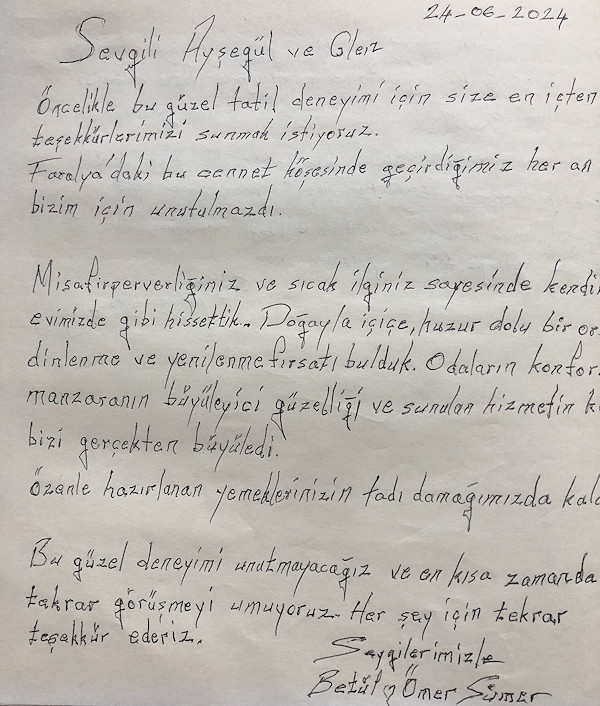 24-06-2024
Sevgili Ayşegül ve Glen
Öncelikle bu güzel tatil deneyimi için size en içten
teşekkürlerimizi sunmak istiyoruz.
Faralya'daki bu cennet köşesinde geçirdiğimiz her an
bizim için unutulmazdı.
Misafirperverliğiniz ve sıcak ilginiz sayesinde kendi
evimizde gibi hissettik. Doğayla içiçe, huzur dolu bir or
dinlenme ve yenilenme fırsatı bulduk. Odaların konfor
manzaranın büyüleyici güzelliği ve sunulan hizmetin k
bizi gerçekten büyüledi.
Özenle hazırlanan yemeklerinizin tadı damağımızda kald
Bu güzel deneyimi unutmayacağız ve en kısa zamanda
takrar görüşmeyi umuyoruz. Her şey için tekrar
teşekkür ederiz.
Saygilerimizle
Betül ♡ Ömer Sümer